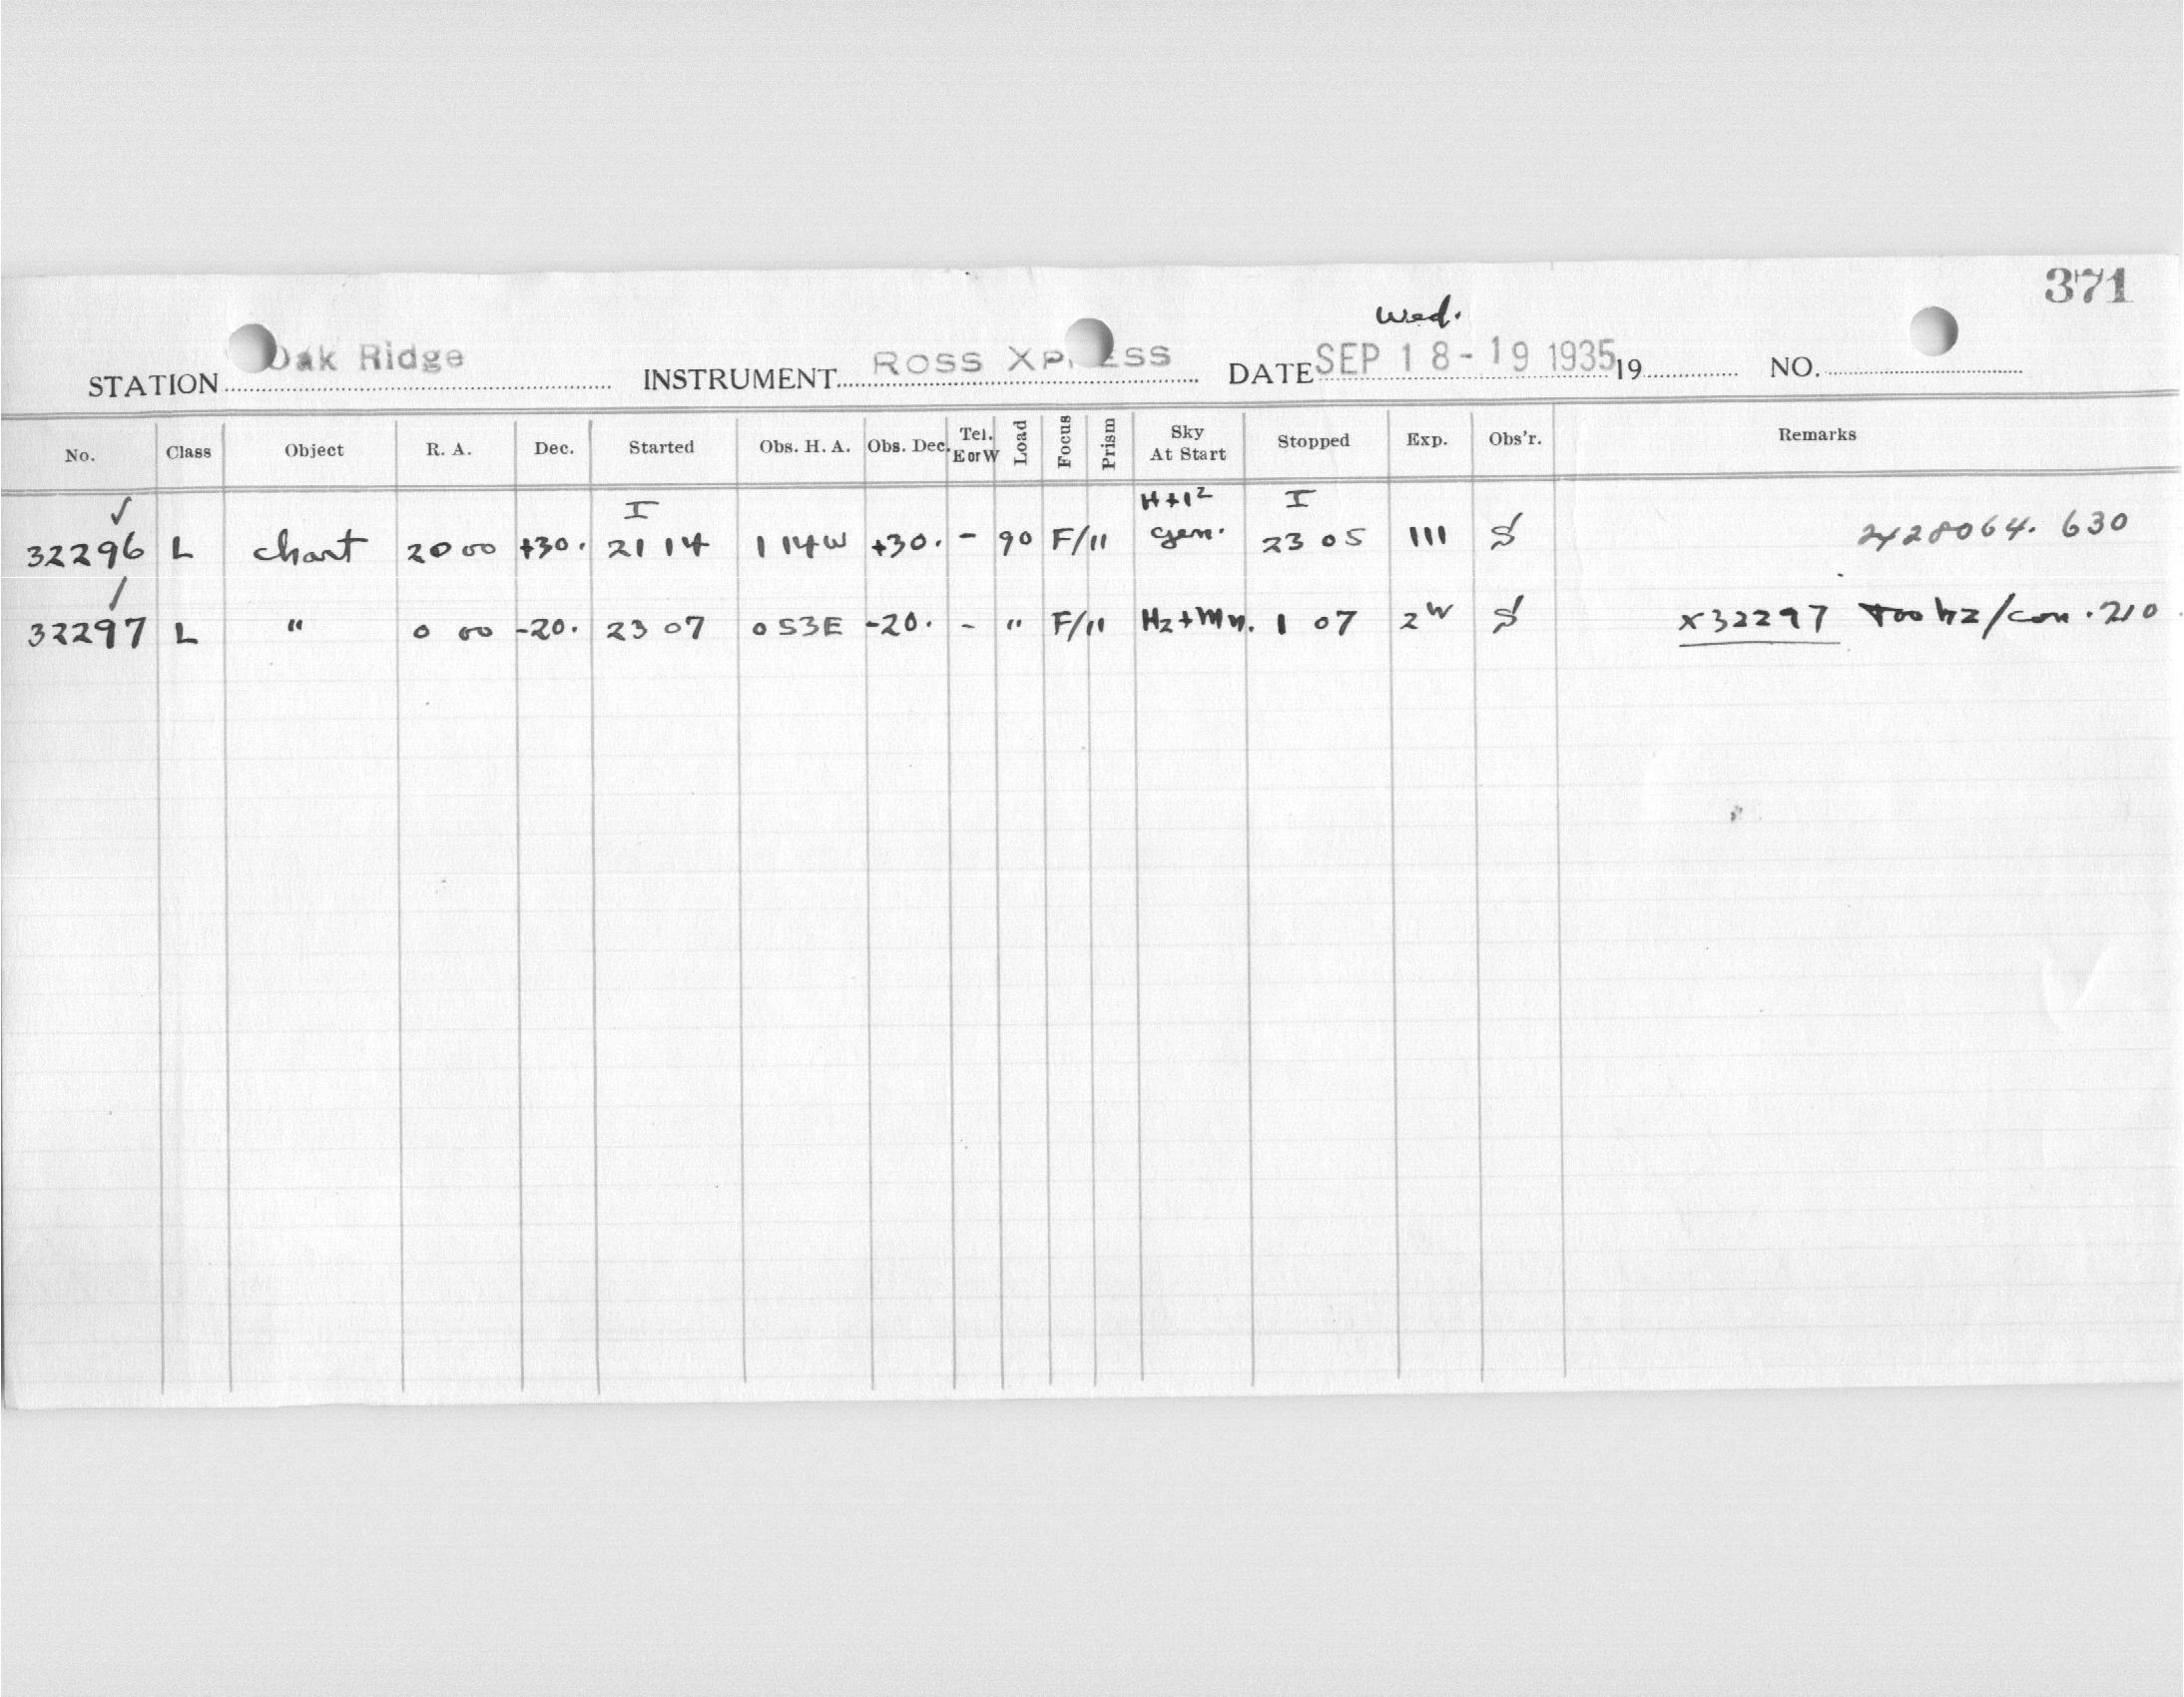 371
Wed.
STATION Oak Ridge INSTRUMENT ROSS XPRESS DATE SEP 18-19 1935 19 NO.
No. Class Object R. A. Dec. Started Obs. H. A. Obs. Dec. Tel. E or W Load Focus Prism Sky At Start Stopped Exp. Obs'r. Remarks
✓ I H+1² I
32296 L chart 20 00 +30. 21 14 1 14W +30. - 90 F/11 gen. 23 05 111 S 2428064.630
/
32297 L " 0 00 -20. 23 07 0 53E -20. - " F/11 Hz+Mn. 1 07 2 S x32297 too hz/con .710